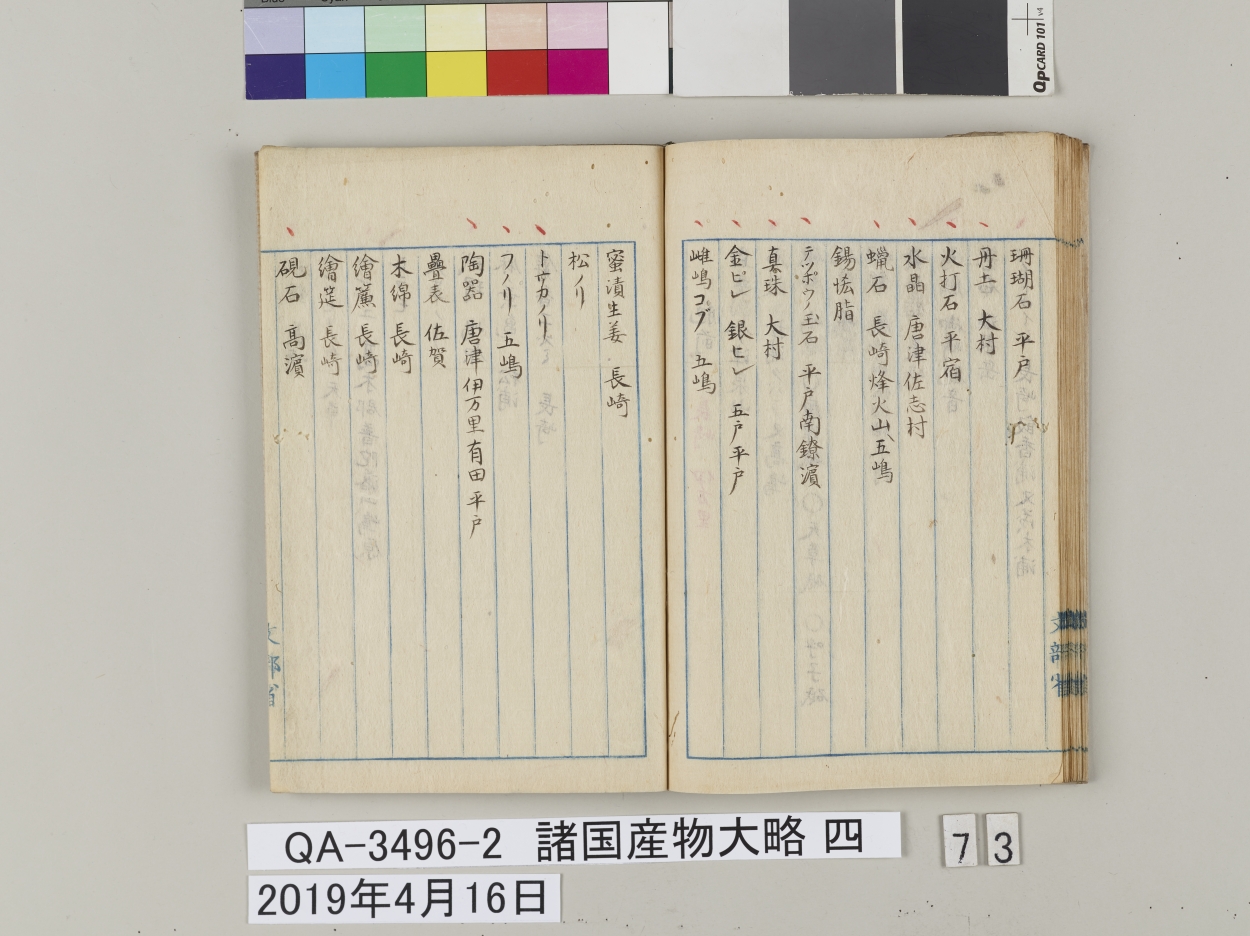 QPCARD 101 v4
珊瑚石 平戸
丹土 大村
火打石 平宿
水晶 唐津佐志村
蠟石 長崎烽火山、五嶋
鍚恡脂
テツポウノ玉石 平戸南鐐濵
真珠 大村
金ピレ 銀ヒレ 五戸平戸
雌嶋コブ 五嶋
蜜漬生姜 長崎
松ノリ
トサカノリ
フノリ 五嶋
陶器 唐津伊万里有田平戸
疊表 佐賀
木綿 長崎
繪簾 長崎
繪筵 長崎
硯石 髙濵
文部省
QA-3496-2 諸国産物大略 四
73
2019年4月16日